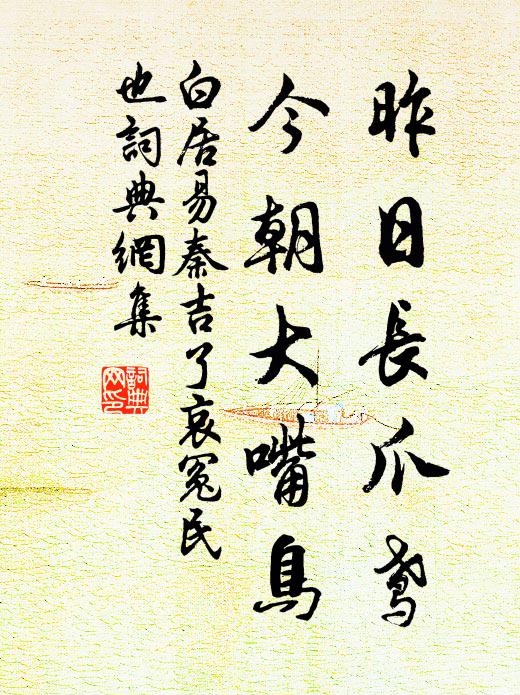 昨日長爪鳶
今朝大嘴鳥
白居易秦吉了哀冤民
也詞典網集
詞典網印